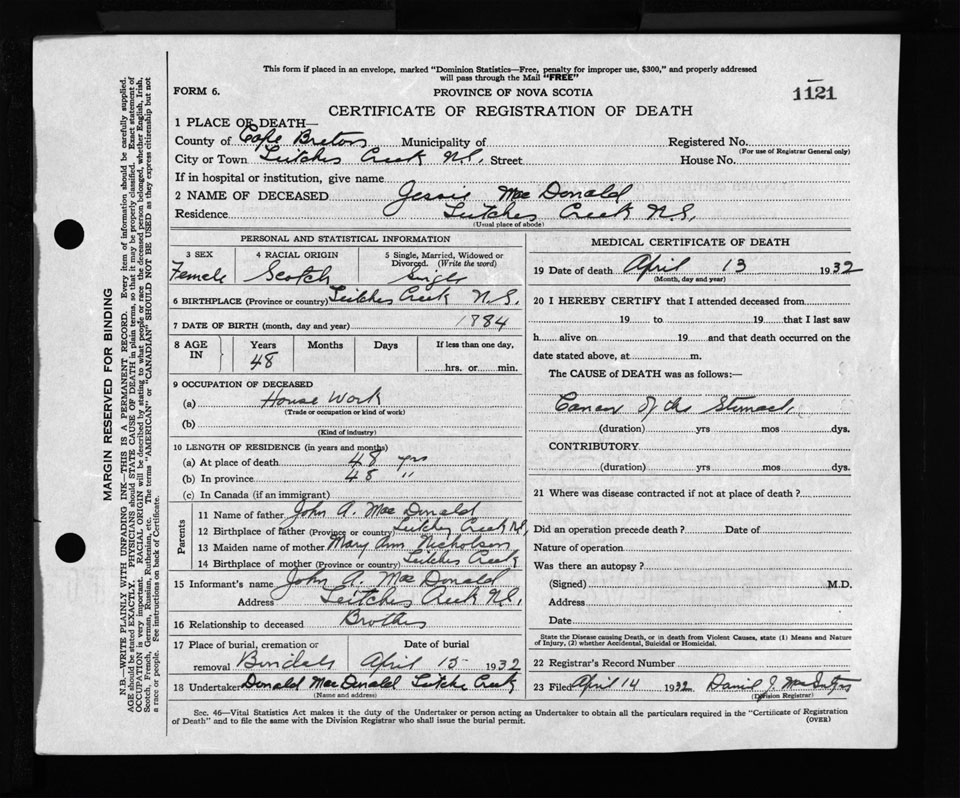 This form if placed in an envelope, marked "Dominion Statistics—Free, penalty for improper use, $300," and properly addressed
will pass through the Mail "FREE"
FORM 6.
PROVINCE OF NOVA SCOTIA
1121
CERTIFICATE OF REGISTRATION OF DEATH
1 PLACE OF DEATH—
County of Cape Breton Municipality of Registered No.
(For use of Registrar General only)
City or Town Leitches Creek N.S. Street House No.
If in hospital or institution, give name
2 NAME OF DECEASED Jessie Mac Donald
Residence Leitches Creek N.S.
(Usual place of abode)
PERSONAL AND STATISTICAL INFORMATION
3 SEX 4 RACIAL ORIGIN 5 Single, Married, Widowed or
Divorced. (Write the word)
Female Scotch Single
6 BIRTHPLACE (Province or country) Leitches Creek N.S.
7 DATE OF BIRTH (month, day and year) 1884
8 AGE IN Years Months Days If less than one day,
48 hrs. or min.
9 OCCUPATION OF DECEASED
(a) House Work
(Trade or occupation or kind of work)
(b)
(Kind of industry)
10 LENGTH OF RESIDENCE (in years and months)
(a) At place of death 48 yrs
(b) In province 48 "
(c) In Canada (if an immigrant)
Parents
11 Name of father John A. Mac Donald
12 Birthplace of father (Province or country) Leitches Creek N.S.
13 Maiden name of mother Mary Ann Nicholson
14 Birthplace of mother (Province or country) Leitches Creek
15 Informant's name John A. Mac Donald
Address Leitches Creek N.S.
16 Relationship to deceased Brother
17 Place of burial, cremation or Date of burial
removal April 15 1932
18 Undertaker Donald MacDonald Leitches Creek
(Name and address)
MEDICAL CERTIFICATE OF DEATH
19 Date of death April 13 1932
(Month, day and year)
20 I HEREBY CERTIFY that I attended deceased from
19 to 19 that I last saw
h alive on 19 and that death occurred on the
date stated above, at m.
The CAUSE of DEATH was as follows:—
Cancer of the Stomach,
(duration) yrs mos dys.
CONTRIBUTORY
(duration) yrs mos dys.
21 Where was disease contracted if not at place of death?
Did an operation precede death? Date of
Nature of operation
Was there an autopsy?
(Signed) M.D.
Address
Date
State the Disease causing Death, or in death from Violent Causes, state (1) Means and Nature
of Injury, (2) whether Accidental, Suicidal or Homicidal.
22 Registrar's Record Number
23 Filed April 14 1932 Daniel J. MacIntyre
(Division Registrar)
Sec. 46—Vital Statistics Act makes it the duty of the Undertaker or person acting as Undertaker to obtain all the particulars required in the "Certificate of Registration
of Death" and to file the same with the Division Registrar who shall issue the burial permit. (OVER)
MARGIN RESERVED FOR BINDING
N.B.—WRITE PLAINLY WITH UNFADING INK—THIS IS A PERMANENT RECORD. Every item of information should be carefully supplied.
AGE should be stated EXACTLY. PHYSICIANS should STATE CAUSE OF DEATH in plain terms, so that it may be properly classified. Exact statement of
OCCUPATION is very important. RACIAL ORIGIN will be described by stating to what people or race the deceased person belonged, whether English, Irish,
Scotch, French, German, Russian, Ruthenian, etc. The terms "AMERICAN" or "CANADIAN" SHOULD NOT BE USED as they express citizenship but not
a race or people. See instructions on back of Certificate.